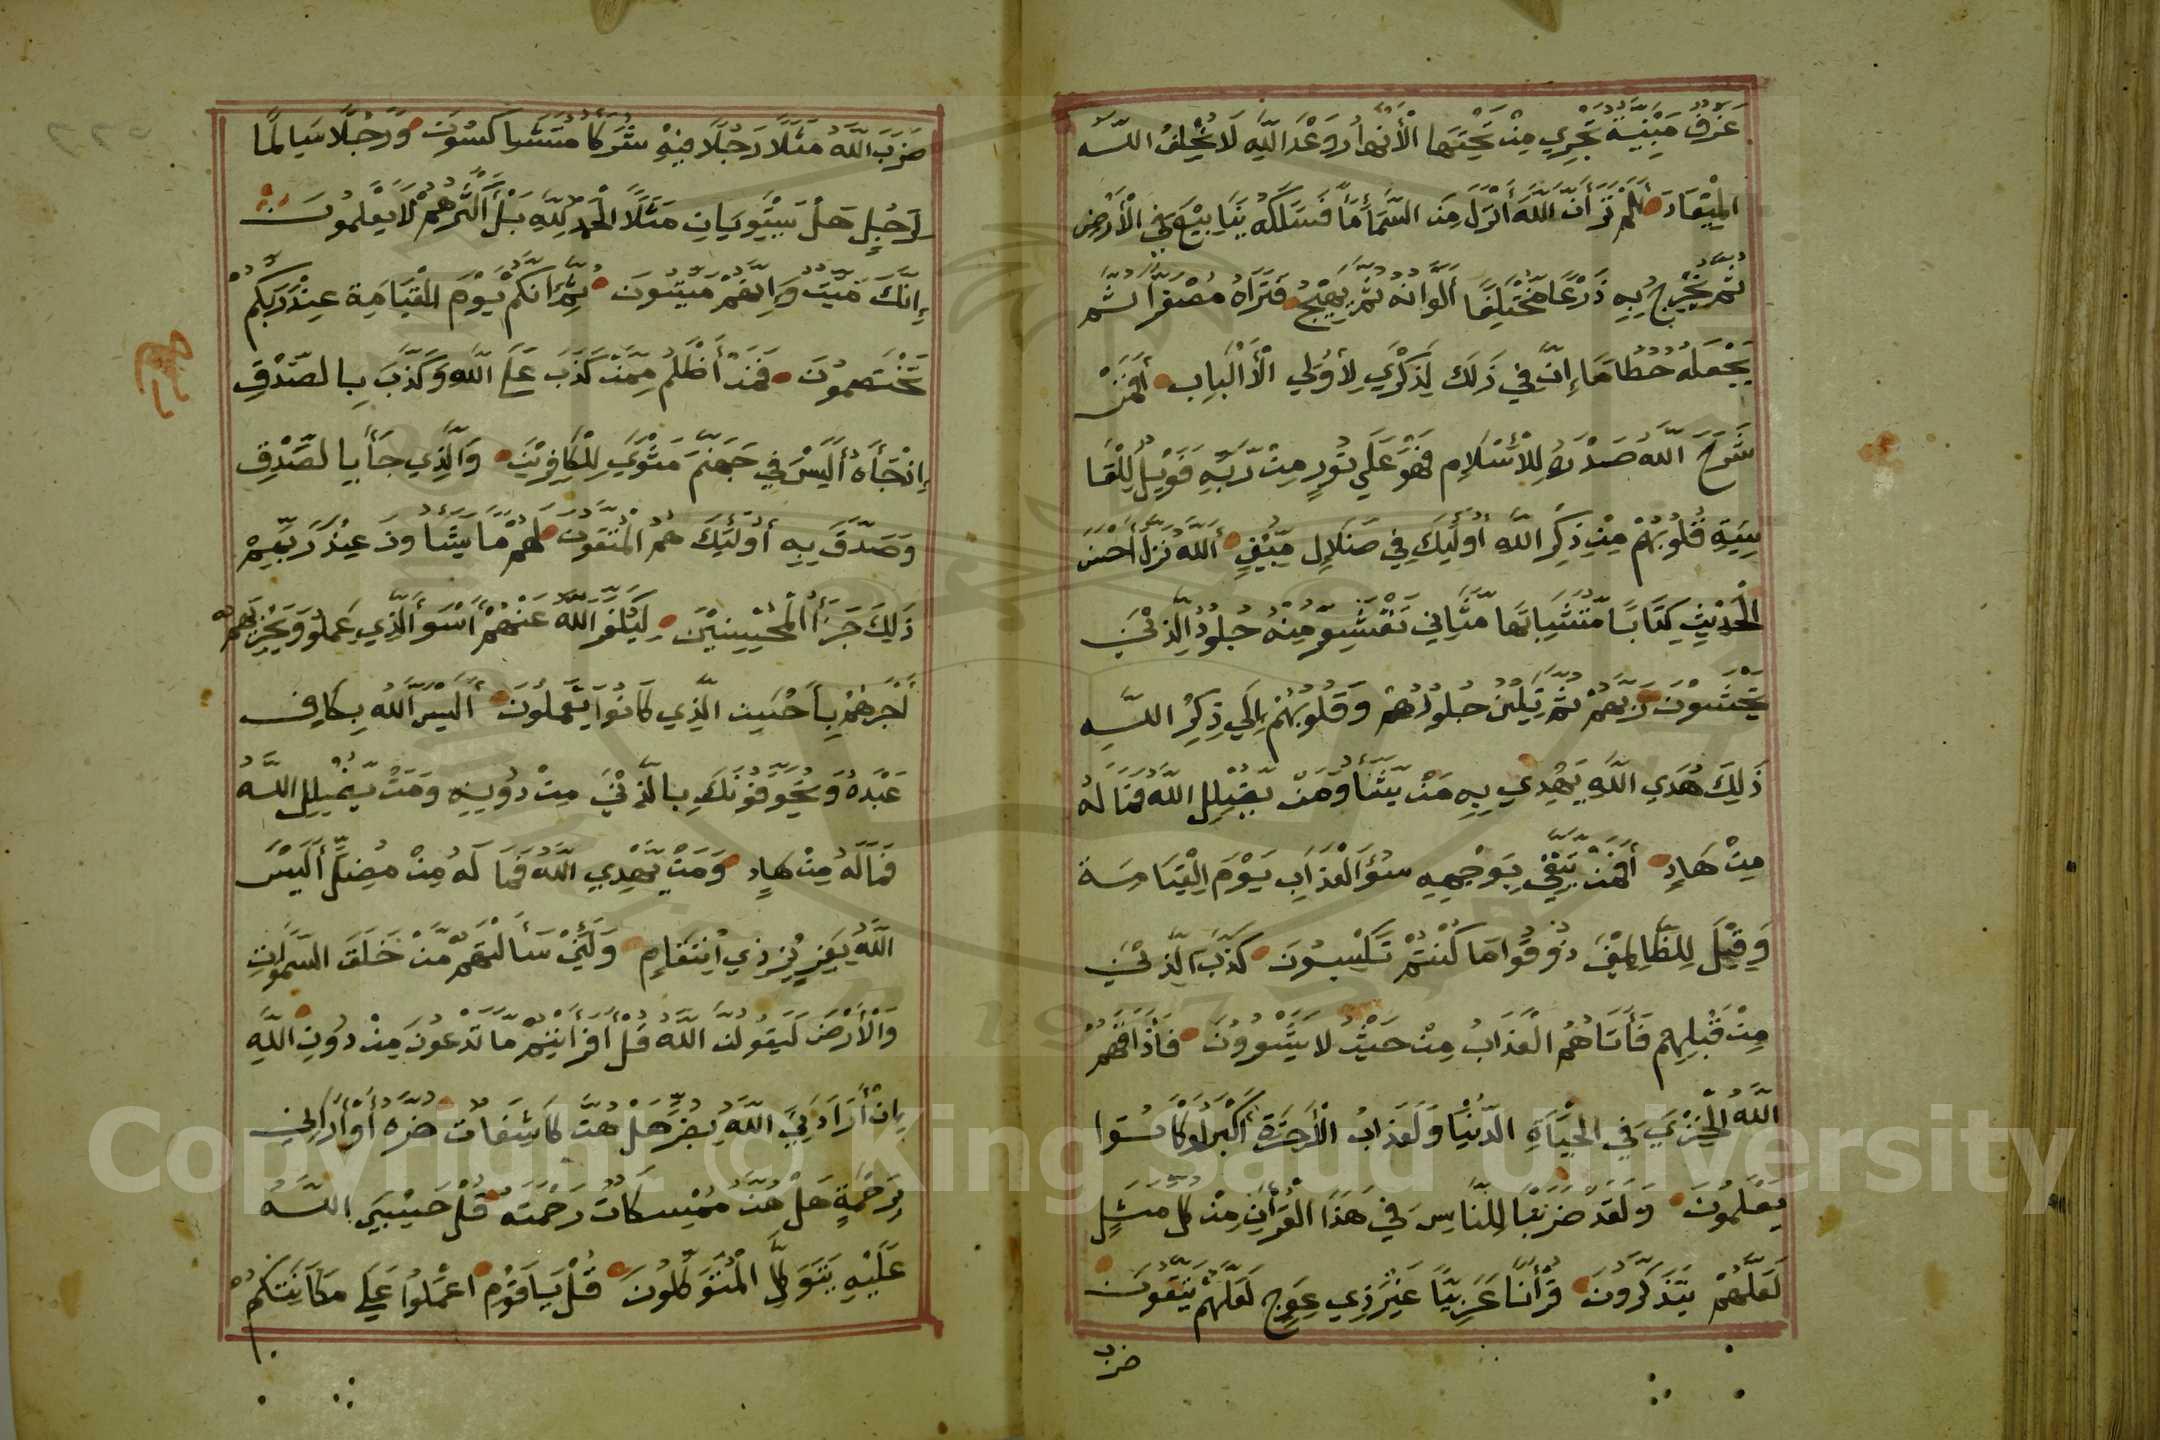 غرف مبنية تجري من تحتها الأنهار وعد الله لا يخلف الله
الميعاد ألم تر أن الله أنزل من السماء ماء فسلكه ينابيع في الأرض
ثم يخرج به زرعا مختلفا ألوانه ثم يهيج فتراه مصفرا ثم
يجعله حطاما إن في ذلك لذكري لأولي الألباب أفمن
شرح الله صدره للأسلام فهو علي نور من ربه فويل للقا
سية قلوبهم من ذكر الله أولئك في ضلال مبين الله نزل أحسن
الحديث كتابا متشابها مثاني تقشعر منه جلود الذين
يخشون ربهم ثم تلين جلودهم وقلوبهم إلي ذكر الله
ذلك هدي الله يهدي به من يشاء ومن يضلل الله فما له
من هاد أفمن يتقي بوجهه سوء العذاب يوم القيامة
وقيل للظالمين ذوقوا ما كنتم تكسبون كذب الذين
من قبلهم فأتاهم العذاب من حيث لا يشعرون فأذاقهم
الله الخزي في الحياة الدنيا ولعذاب الأخرة أكبر لو كانوا
يعلمون ولقد ضربنا للناس في هذا القرأن من كل مثل
لعلهم يتذكرون قرأنا عربيا غير ذي عوج لعلهم يتقون
ضرب
ضرب الله مثلا رجلا فيه شركا متشاكسون ورجلا سالما
لرجل هل يستويان مثلا الحمد لله بل أكثرهم لا يعلمون
إنك ميت وإنهم ميتون ثم إنكم يوم القيامة عند ربكم
تختصمون فمن أظلم ممن كذب علي الله وكذب بالصدق
إذ جأه أليس في جهنم مثوي للكافرين والذي جأ بالصدق
وصدق به أولئك هم المتقون لهم ما يشاؤن عند ربهم
ذلك جزأ المحسنين ليكفر الله عنهم أسوأ الذي عملوا ويجزيهم
أجرهم بأحسن الذي كانوا يعملون أليس الله بكاف
عبده ويخوفونك بالذين من دونه ومن يضلل الله
فما له من هاد ومن يهدي الله فما له من مضل أليس
الله بعزيز ذي انتقام ولئن سألتهم من خلق السموات
والأرض ليقولن الله قل أفرأيتم ما تدعون من دون الله
إن أرادني الله بضر هل هن كاشفات ضره أو أرادني
برحمة هل هن ممسكات رحمته قل حسبي الله
عليه يتوكل المتوكلون قل يا قوم اعملوا علي مكانتكم
Copyright © King Saud University